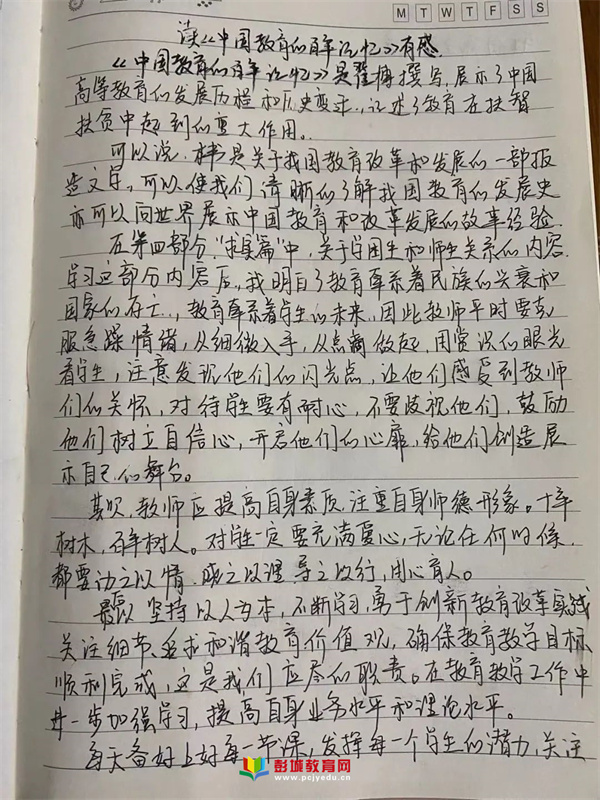 MTWTFSS
读《中国教育的百年记忆》有感
《中国教育的百年记忆》是翟博撰写，展示了中国
高等教育的发展历程和历史变革，记述了教育在扶智
扶贫中起到的重大作用。
可以说，本书是关于我国教育改革和发展的一部报
告文学，可以使我们清晰的了解我国教育的发展史
亦可以向世界展示中国教育和改革发展的故事经验
在第四部分"求真篇"中，关于学困生和师生关系的内容
学习这部分内容后，我明白了教育牵系着民族的兴衰和
国家的存亡，教育牵系着学生的未来，因此教师平时要克
服急躁情绪，从细微入手，从点滴做起，用赏识的眼光
看学生，注意发现他们的闪光点，让他们感受到教师
们的关怀，对待学生要有耐心，不要歧视他们，鼓励
他们树立自信心，开启他们的心扉，给他们创造展
示自己的舞台。
其次，教师应提高自身素质，注重自身师德形象。十年
树木，百年树人。对学生一定要充满爱心，无论任何时候，
都要动之以情，晓之以理，导之以行，用心育人。
最后 坚持以人为本，不断学习，勇于创新教育改革实践
关注细节，追求和谐教育价值观，确保教育教学目标
顺利完成，这是我们应尽的职责。在教育教学工作中
进一步加强学习，提高自身业务水平和理论水平。
每天备好上好每一节课，发挥每一个学生的潜力，关注
彭城教育网
www.pcjyedu.cn